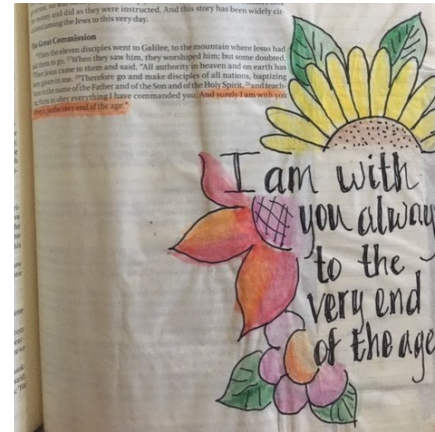 money and did as they were instructed. And this story has been widely cir-
culated among the Jews to this very day.
The Great Commission
Then the eleven disciples went to Galilee, to the mountain where Jesus had
told them to go. 17When they saw him, they worshiped him; but some doubted.
18Then Jesus came to them and said, "All authority in heaven and on earth has
been given to me. 19Therefore go and make disciples of all nations, baptizing
them in the name of the Father and of the Son and of the Holy Spirit, 20and teach-
ing them to obey everything I have commanded you. And surely I am with you
always, to the very end of the age."
I am with
you alway
to the
very end
of the age